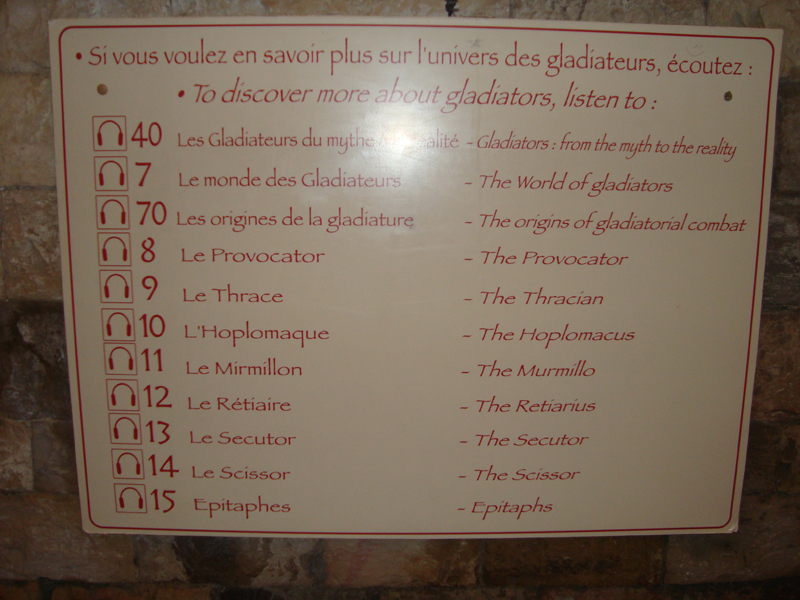 • Si vous voulez en savoir plus sur l'univers des gladiateurs, écoutez :
• To discover more about gladiators, listen to :
40 Les Gladiateurs du mythe à la réalité - Gladiators : from the myth to the reality
7 Le monde des Gladiateurs - The World of gladiators
70 Les origines de la gladiature - The origins of gladiatorial combat
8 Le Provocator - The Provocator
9 Le Thrace - The Thracian
10 L'Hoplomaque - The Hoplomacus
11 Le Mirmillon - The Murmillo
12 Le Rétiaire - The Retiarius
13 Le Secutor - The Secutor
14 Le Scissor - The Scissor
15 Epitaphes - Epitaphs